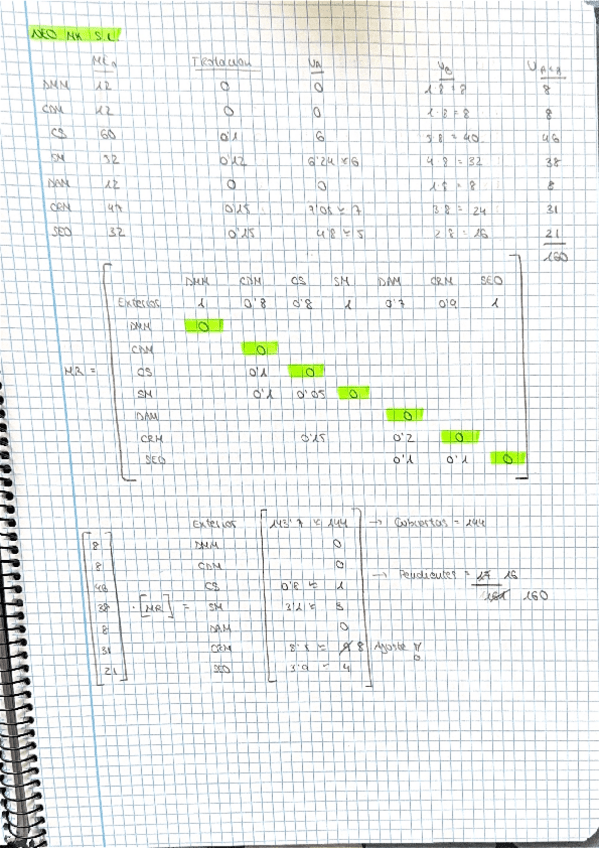 NEO MK S.L.
Mi Rotacion VA VB VA+B
DMM 12 0 0 1·8 = 8 8
CDM 12 0 0 1·8 = 8 8
CS 60 0'1 6 5·8 = 40 46
SM 52 0'12 6'24 ≈ 6 4·8 = 32 38
DAM 12 0 0 1·8 = 8 8
CRM 47 0'15 7'05 ≈ 7 3·8 = 24 31
SEO 32 0'15 4'8 ≈ 5 2·8 = 16 21
160
DMM CDM CS SM DAM CRM SEO
Exterior 1 0'8 0'8 1 0'7 0'9 1
DMM 0
CDM 0
MR = CS 0'1 0
SM 0'1 0'05 0
DAM 0
CRM 0'15 0'2 0
SEO 0'1 0'1 0
Exterior 143'7 ≈ 144 → Cubiertas = 144
8 DMM 0
8 CDM 0
46 CS 0'8 ≈ 1 → Pendientes = 17 16
38 · [MR] = SM 3'1 ≈ 3 161 160
8 DAM 0
31 CRM 8'1 ≈ 8 Ajuste
21 SEO 3'9 ≈ 4